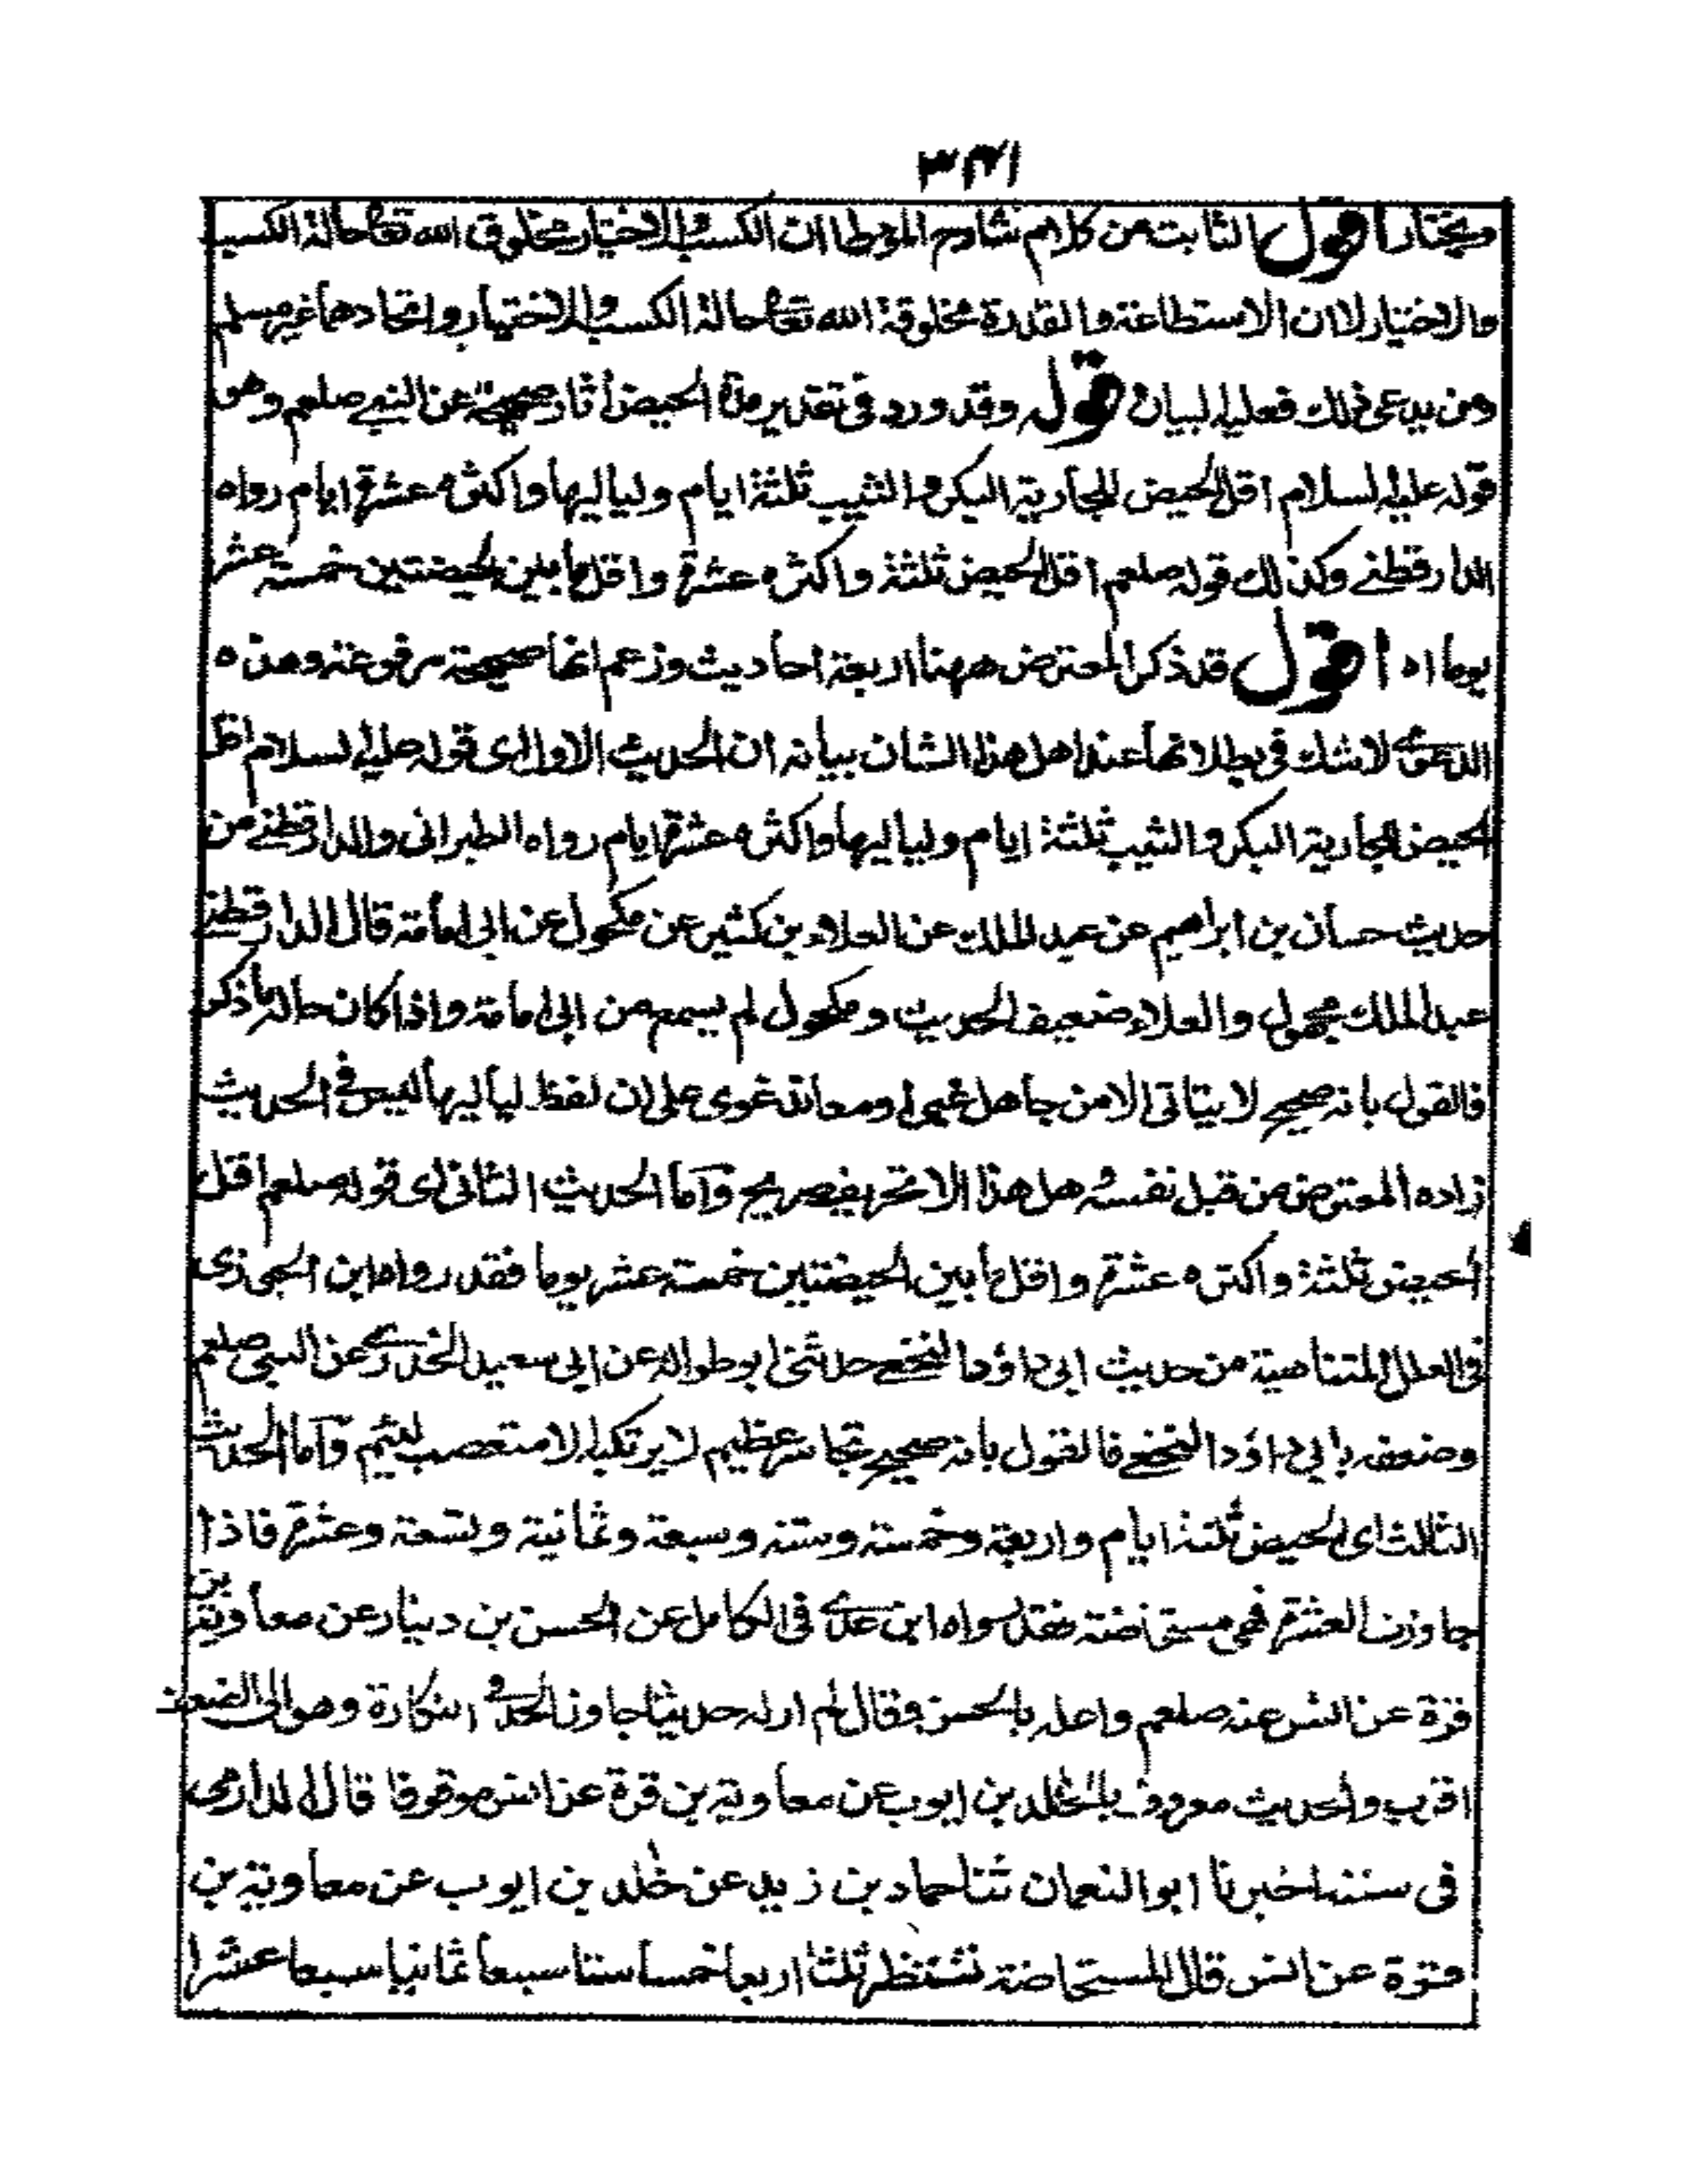 ٣٤١
ويختار اقول الثابت من كلام شارح الموطا ان الكسب والاختيار مخلوق الله تعالى حالة الكسب
والاختيار لا ان الاستطاعة والقدرة مخلوقة الله تعالى حالة الكسب والاختيار واتحادهما غير مسلم
ومن يدعى ذلك فعليه البيان قوله وقد ورد فى تقدير مدة الحيض أثار صحيحة عن النبي صلعم وهو
قوله عليه السلام اقل الحيض للجارية البكر والثيب ثلثة ايام ولياليها واكثره عشرة ايام رواه
الدارقطنے وكذلك قوله صلعم اقل الحيض ثلثة واكثره عشرة واقل ما بين الحيضتين خمسة عشر
يوما اه اقول قد ذكر المعترض ههنا اربعة احاديث وزعم انها صحيحة مرفوعة وهذه
الدعوى لا شك فى بطلانها عند اهل هذا الشان بيانه ان الحديث الاول اى قوله عليه السلام اقل
الحيض للجارية البكر والثيب ثلثة ايام ولياليها واكثره عشرة ايام رواه الطبرانى والدارقطنے من
حديث حسان بن ابراهيم عن عبد الملك عن العلاء بن كثير عن مكحول عن ابى امامة قال الدارقطنے
عبد الملك مجهول والعلاء ضعيف الحديث ومكحول لم يسمع من ابى امامة واذا كان حاله ما ذكر
فالقول بانه صحيح لا يتاتى الا من جاهل غبى او معاند غوى على ان لفظ لياليها ليس فى الحديث
زاده المعترض من قبل نفسه هل هذا الا تحريف صريح واما الحديث الثانى اى قوله صلعم اقل
الحيض ثلثة واكثره عشرة واقل ما بين الحيضتين خمسة عشر يوما فقد رواه ابن الجوزى
فى العلل المتناهية من حديث ابى داؤد النخعے حدثنى ابو طوالة عن ابى سعيد الخدرى عن النبى صلعم
وضعفه بابى داؤد النخعے فالقول بانه صحيح تجاسر عظيم لا يرتكبه الا متعصب لئيم واما الحديث
الثالث اى الحيض ثلثة ايام واربعة وخمسة وستة وسبعة وثمانية وتسعة وعشرة فاذا
جاوزت العشرة فهى مستحاضة فقد رواه ابن عدى فى الكامل عن الحسن بن دينار عن معاوية بن
قرة عن انس عنه صلعم واعله بالحسن فقال لم ار له حديثا جاوز الحد فى النكارة وهو الى الضعف
اقرب والحديث معروف بالخلد بن ايوب عن معاوية بن قرة عن انس موقوفا قال الدارمى
فى سننه اخبرنا ابو النعمان ثنا حماد بن زيد عن خلد بن ايوب عن معاوية بن
قرة عن انس قال المستحاضة تنتظر ثلثا اربعا خمسا ستا سبعا ثمانيا سبعا عشرا